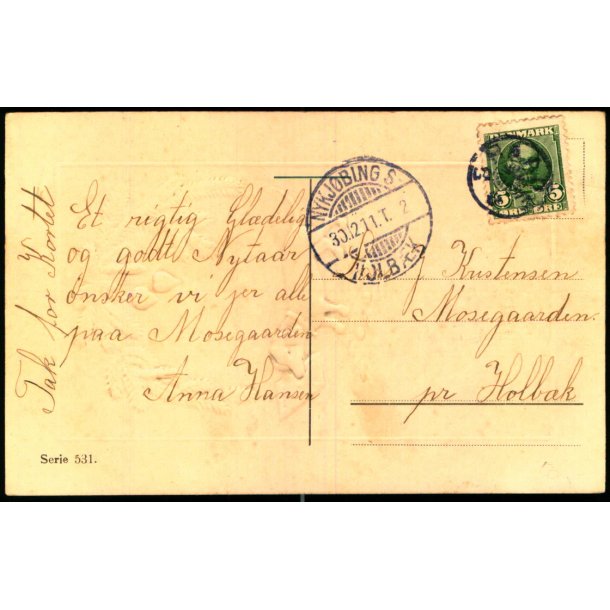 Tak for Kortet
Et rigtig Glædelig
og godt Nytaar
ønsker vi jer alle
paa Mosegaarden
Anna Hansen
Serie 531.
NYKJØBING S.
30.12.11. T. 2
DANMARK
5 5
ØRE ØRE
Kristensen
Mosegaarden.
pr Holbæk